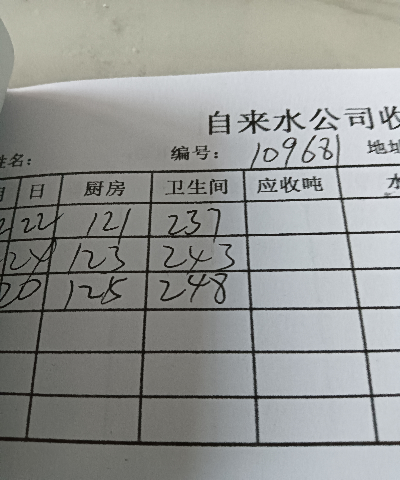 自来水公司收
姓名： 编号： 109681 地址
月 日 厨房 卫生间 应收吨 水
2 22 121 237
24 123 243
20 125 248